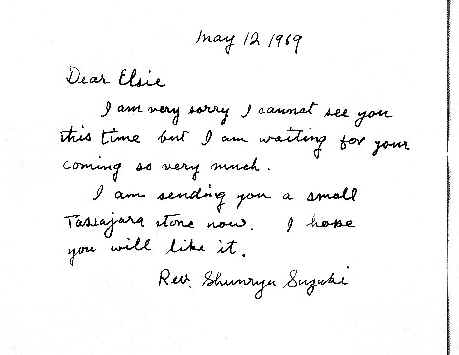 May 12 1969
Dear Elsie
I am very sorry I cannot see you
this time but I am waiting for your
coming so very much.
I am sending you a small
Tassajara stone now. I hope
you will like it.
Rev. Shunryu Suzuki